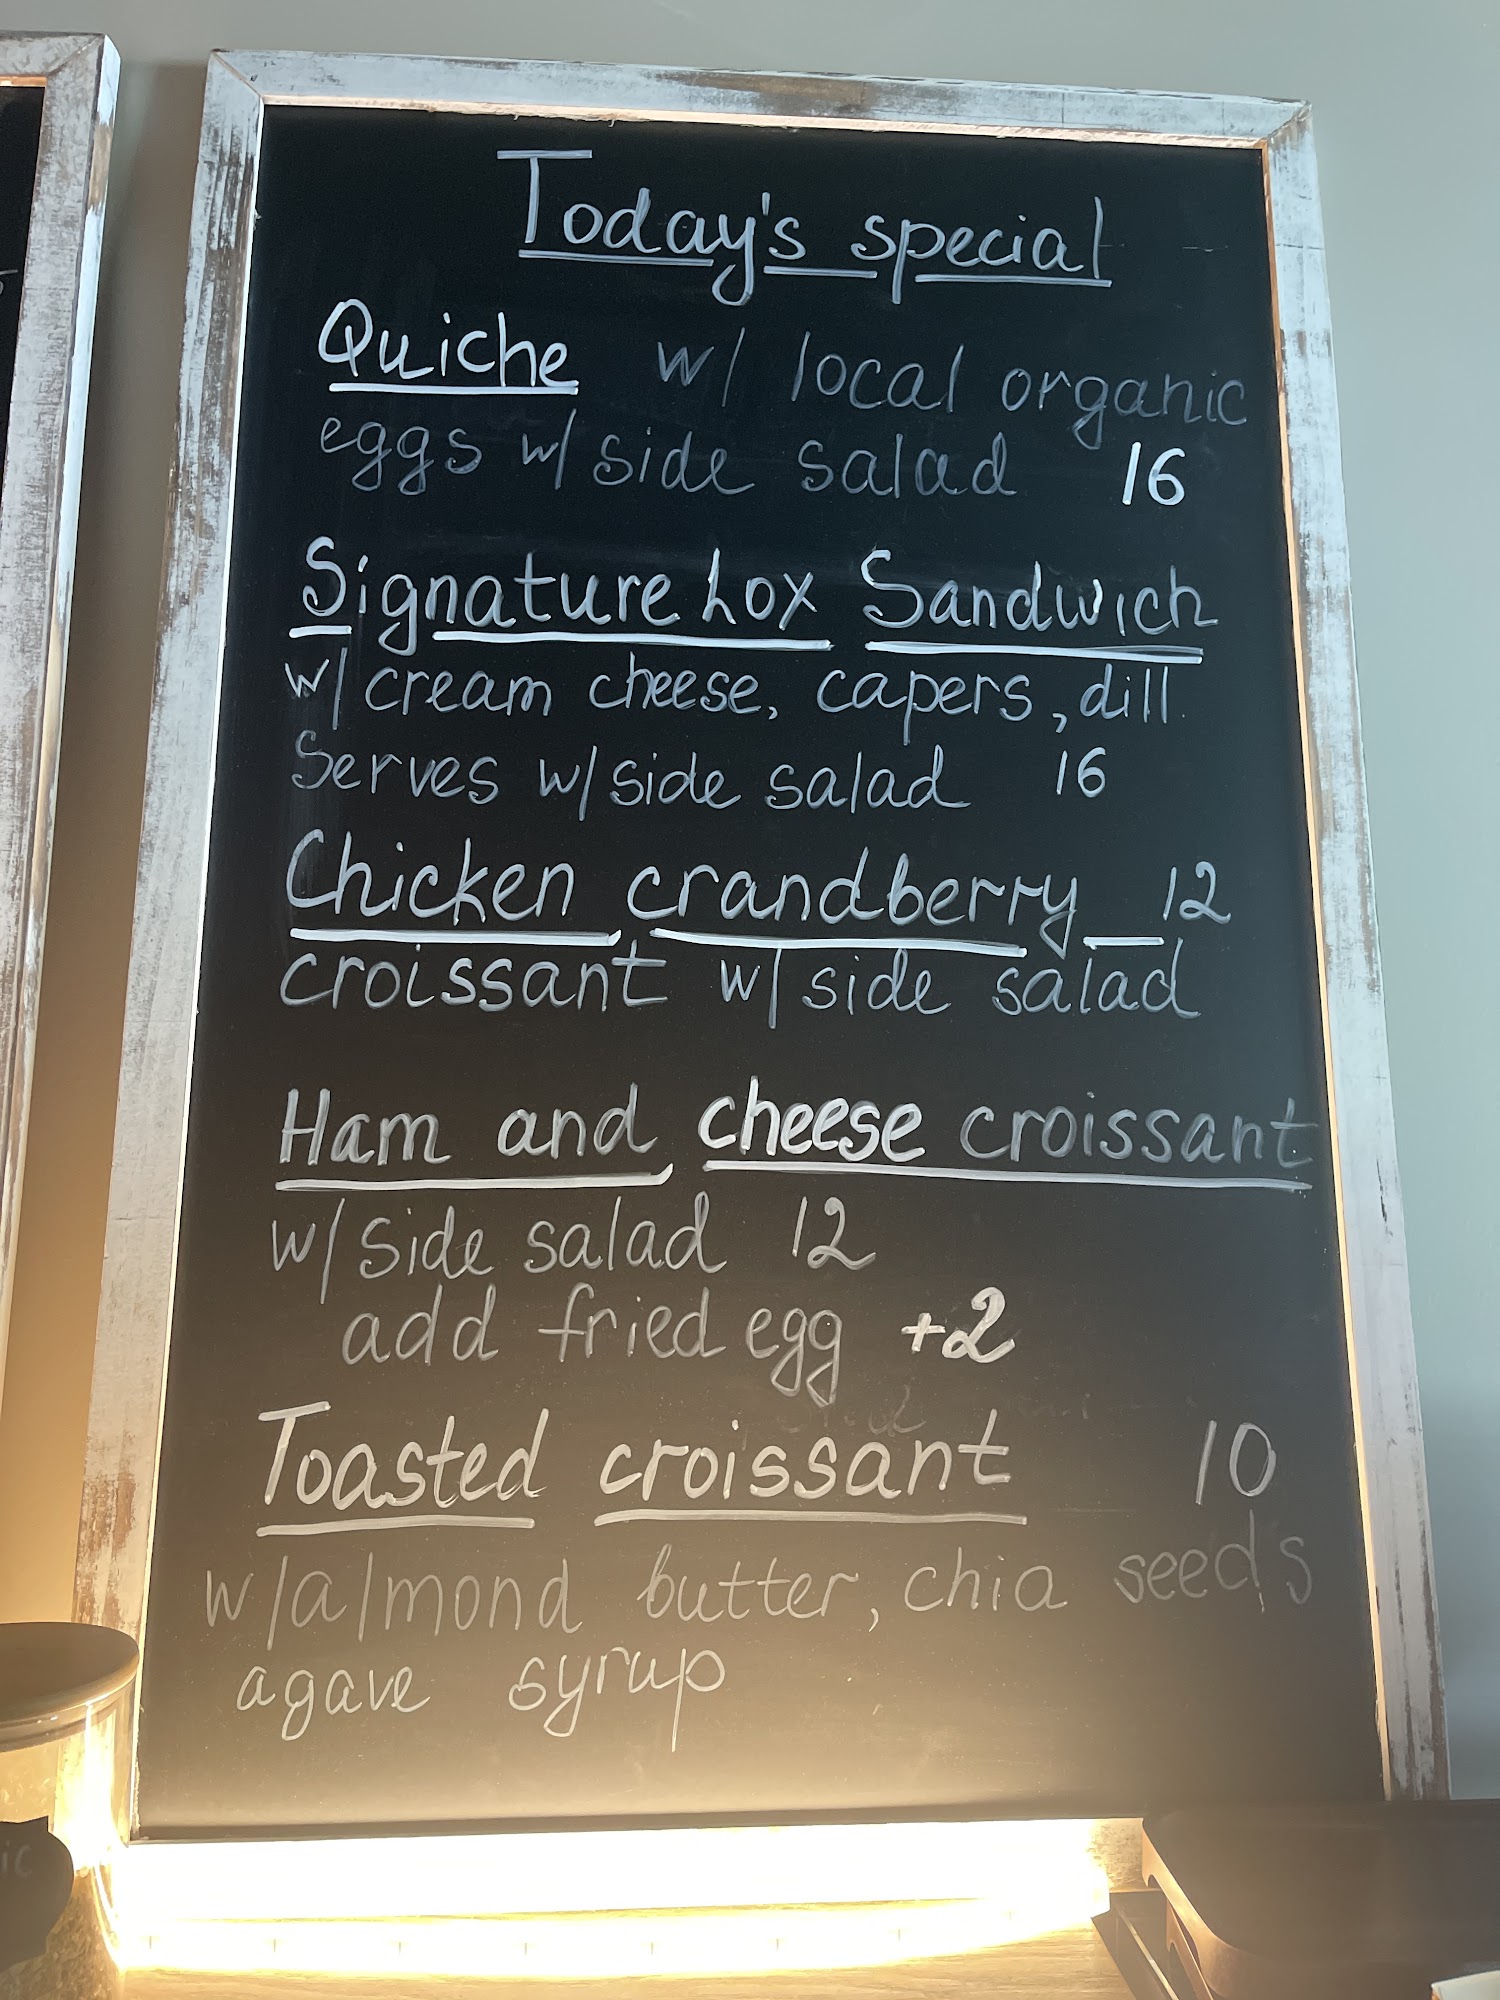 Today's special
Quiche w/ local organic
eggs w/ side salad 16
Signature Lox Sandwich
w/ cream cheese, capers, dill
Serves w/ side salad 16
Chicken crandberry 12
croissant w/ side salad
Ham and cheese croissant
w/ side salad 12
add fried egg +2
Toasted croissant 10
w/ almond butter, chia seeds
agave syrup